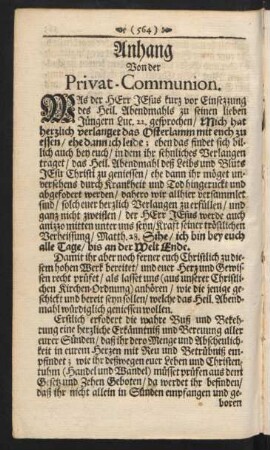 (564)
Anhang
Von der
Privat-Communion.
WAs der HErr JEsus kurz vor Einsezung
des Heil. Abendmahls zu seinen lieben
Jüngern Luc. 22. gesprochen/ Mich hat
herzlich verlanget das Osterlamm mit euch zu
essen/ ehe dann ich leide; eben das findet sich bil-
lich auch bey euch/ in dem ihr sehnliches Verlangen
traget/ das Heil. Abendmahl des Leibs und Bluts
JEsu Christi zu geniessen/ ehe dann ihr möget un-
versehens durch Kranckheit und Tod hingeruckt und
abgefodert werden/ dahero wir allhier versammlet
sind/ solch euer herzliches Verlangen zu erfüllen/ und
gang nicht zweiflen/ der HErr JEsus werde auch
anizzo mitten unter uns seyn/ Kraft seiner tröstlichen
Verheissung/ Matth. 28. Sihe/ ich bin bey euch
alle Tage/ bis an der Welt Ende.
Damit ihr aber noch ferner euch Christlich zu die-
sem hohen Werk bereitet/ und euer Herz und Gewis-
sen recht prüfet/ als lasset uns (aus unserer Christli-
chen Kirchen-Ordnung) anhören/ wie die jenige ge-
schickt und bereit seyn sollen/ welche das Heil. Abend-
mahl würdiglich geniessen wollen.
Erstlich erfodert die wahre Buß und Bekeh-
rung eine herzliche Erkänntniß und Bereuung aller
eurer Sünden/ daß ihr dero Menge und Abscheulich-
keit in eurem Herzen mit Reu und Betrübniß em-
pfindet; wie ihr deßwegen euer Leben und Christen-
tuhm (Handel und Wandel) müsset prüfen aus dem
Gesez und Zehen Geboten/ da werdet ihr befinden/
daß ihr nicht allein in Sünden empfangen und ge-
boren